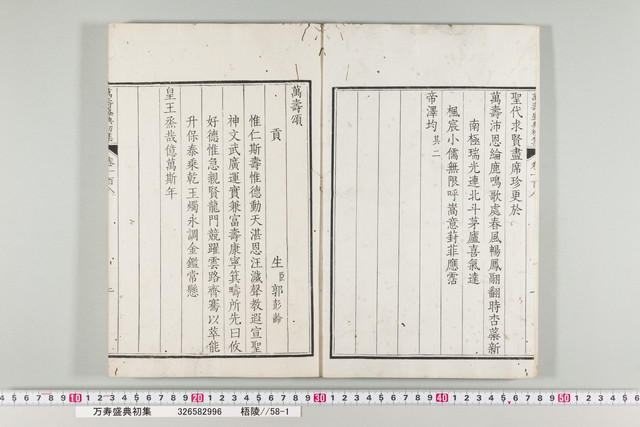 聖代求賢盡席珍更於
萬壽沛恩綸鹿鳴歌處春風暢鳳翮翻時杏蘂新
南極瑞光連北斗茅廬喜氣達
楓宸小儒無限呼嵩意葑菲應霑
帝澤均其二
萬壽頌
貢生臣郭彭齡
惟仁斯壽惟德動天湛恩汪濊聲教遐宣聖
神文武廣運實兼富壽康寧箕疇所先曰攸
好德惟急親賢龍門競躍雲路齊騫以莘能
升保泰乘乾玉燭永調金鑑常懸
皇王烝哉億萬斯年
万寿盛典初集 326582996 梧陵//58-1
10 20 30 40 50